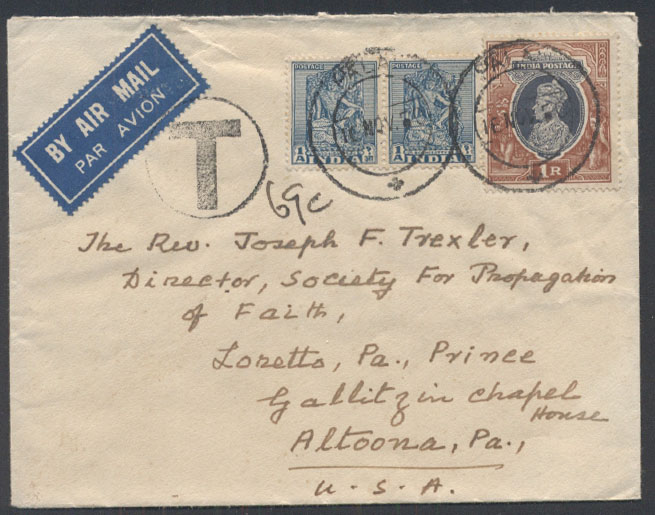 BY AIR MAIL
PAR AVION
T
69c
POSTAGE
1 As
INDIA
POSTAGE
1 As
INDIA
INDIA POSTAGE
1R
16 NOV.
16 NOV.
The Rev. Joseph F. Trexler,
Director, Society For Propagation
of Faith,
Loretto, Pa., Prince
Gallitzin Chapel
House
Altoona, Pa.,
U. S. A.